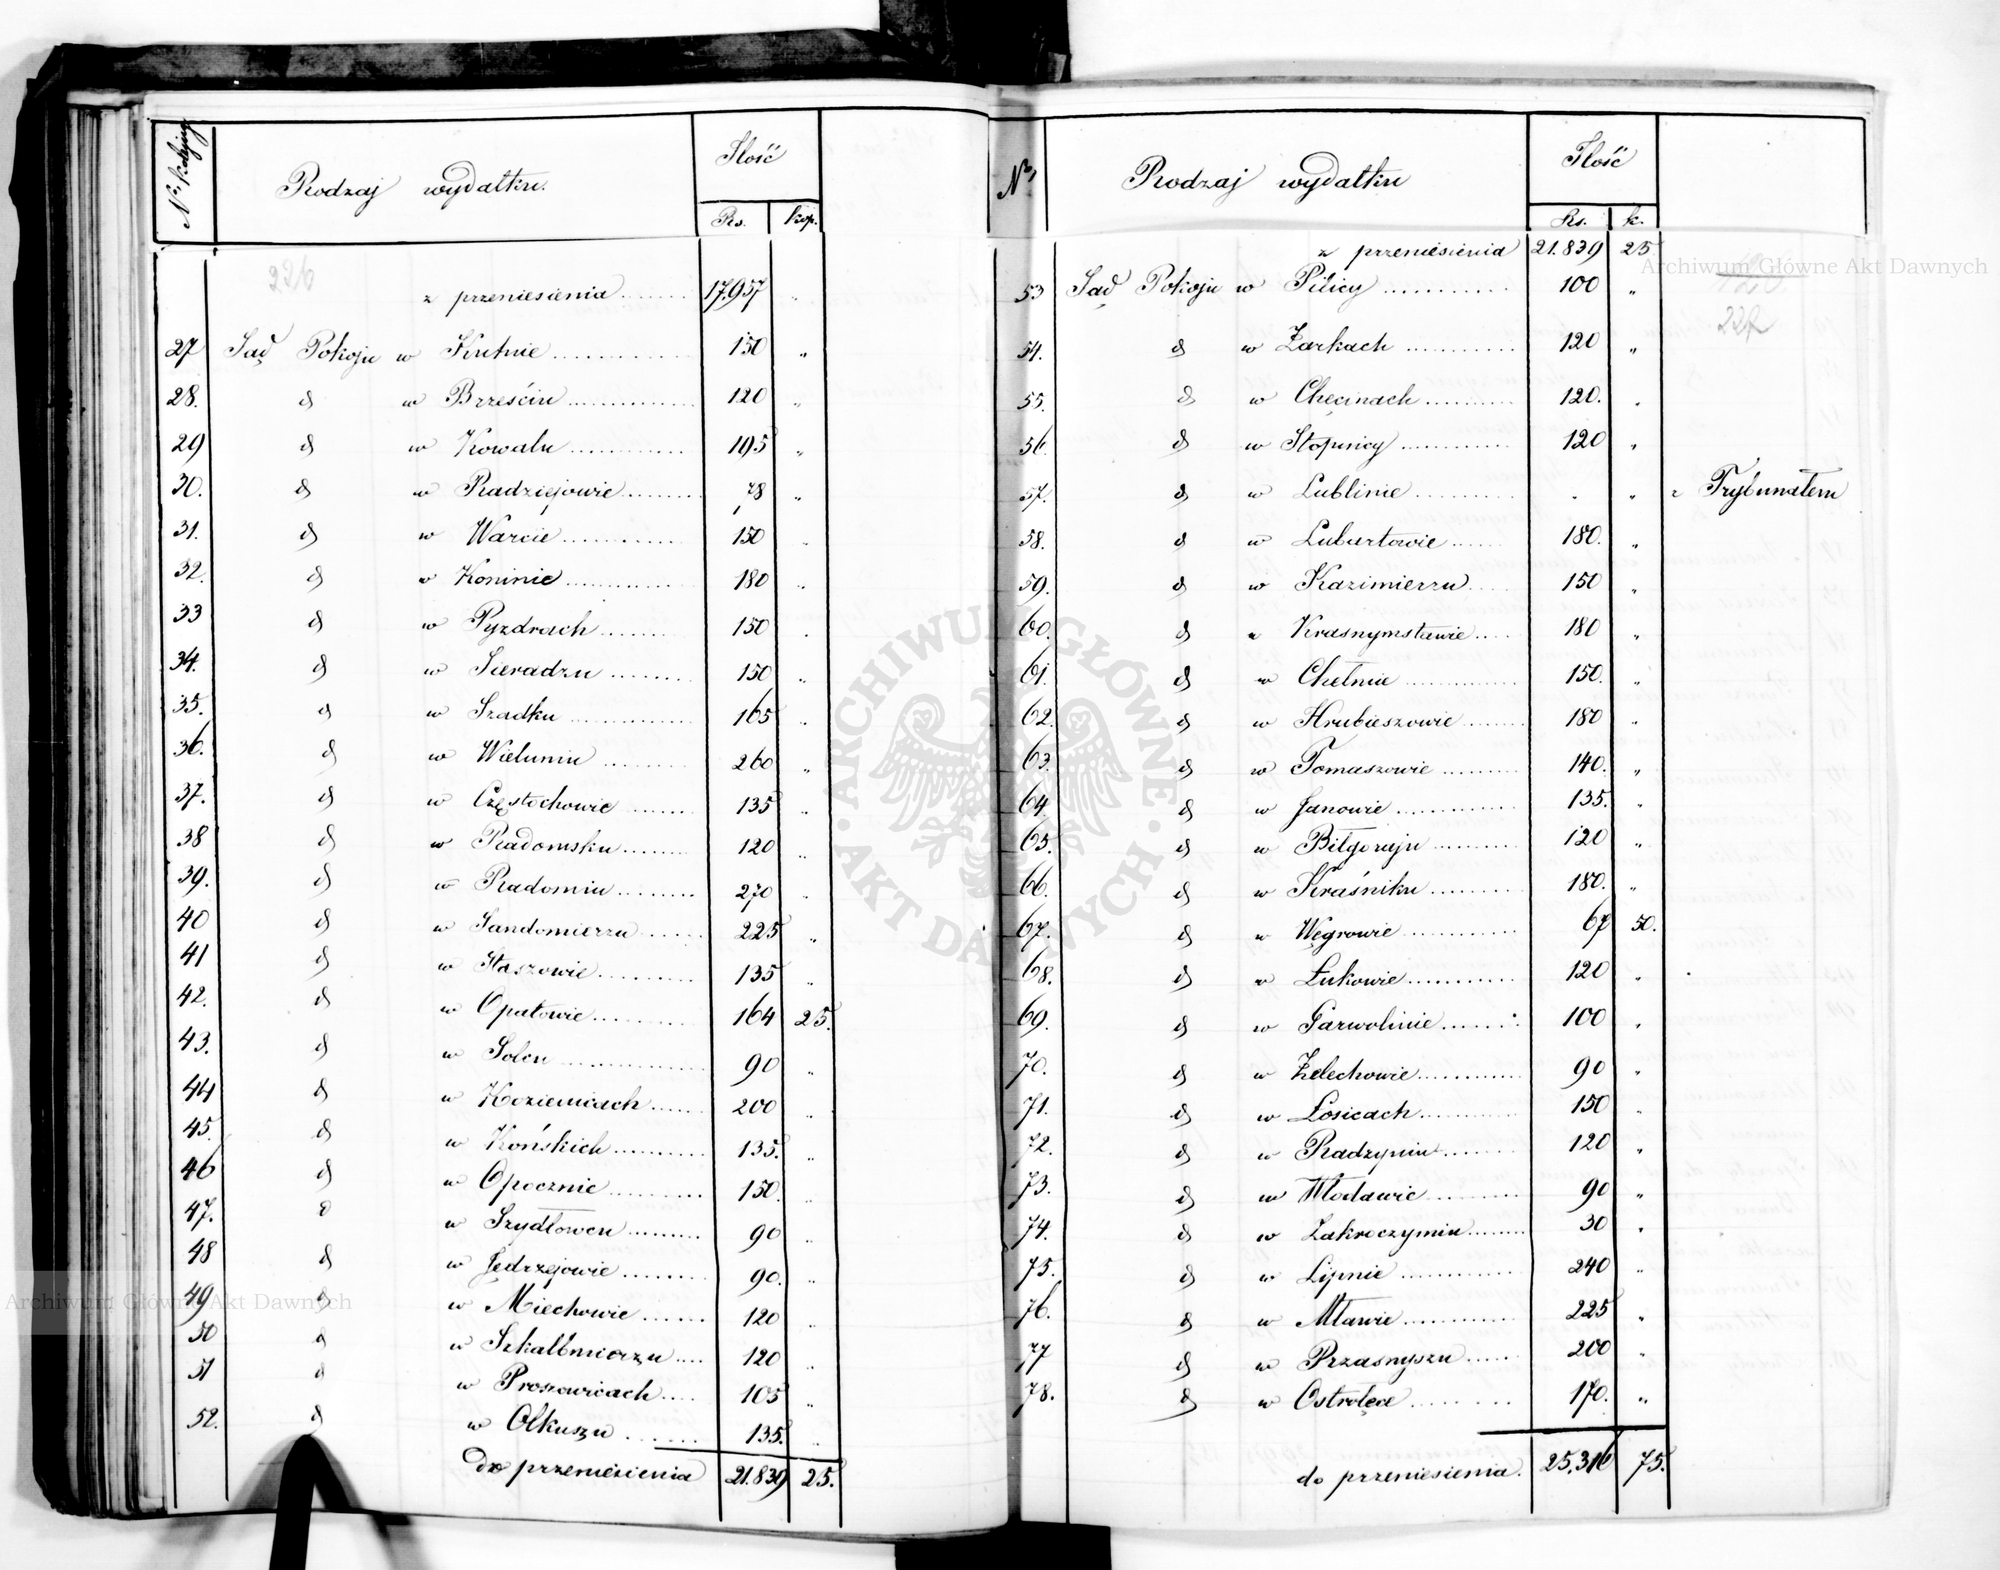 N° kolejny
Rodzaj wydatku.
Ilość
Rs. kop.
226
z przeniesienia ........ 17,957 "
27 Sąd Pokoju w Kutnie .............. 150 "
28. d w Brześciu .............. 120 "
29 d w Kowalu ............ 195 "
30. d w Radziejowie .......... 78 "
31. d w Warcie ............. 150 "
32. d w Koninie ............. 180 "
33 d w Pyzdrach ......... 150 "
34. d w Sieradzu ......... 150 "
35. d w Szadku ............. 165 "
36. d w Wieluniu ......... 260 "
37. d w Częstochowie ........ 135 "
38 d w Radomsku ........ 120 "
39. d w Radomiu ......... 270 "
40 d w Sandomierzu ....... 225 "
41 d w Staszowie .......... 135 "
42. d w Opatowie .......... 164 25.
43. d w Solcu ............. 90 "
44 d w Kozienicach ...... 200 "
45. d w Końskich .......... 135. "
46 d w Opocznie .......... 150. "
47. d w Szydłowcu ......... 90 "
48 d w Jędrzejowie ........ 90. "
49 d w Miechowie ....... 120 "
50 d w Szkalbmierzu .... 120 "
51 d w Proszowicach .... 105 "
52. d w Olkuszu ...... 135. "
do przeniesienia 21.839 25.
N°
Rodzaj wydatku
Ilość
Rs. k.
z przeniesienia 21.839 25.
53 Sąd Pokoju w Pilicy ............ 100 "
227
54. d w Żarkach ........... 120 "
55. d w Chęcinach ......... 120. "
56. d w Stopnicy ........... 120 "
57. d w Lublinie ........... . " z Trybunałem
58. d w Lubartowie ...... 180. "
59. d w Kazimierzu .... 150 "
60. d w Krasnymstawie .... 180 "
61. d w Chełmie ............ 150. "
62. d w Hrubieszowie ....... 180 "
63. d w Tomaszowie ......... 140. "
64. d w Janowie ............. 135. "
65. d w Biłgoraju .......... 120 "
66. d w Kraśniku .......... 180. "
67. d w Węgrowie ............ 67 50.
68. d w Łukowie ............ 120 "
69. d w Garwolinie ........ 100 "
70. d w Żelechowie ........... 90 "
71. d w Łosicach ........... 150 "
72. d w Radzyniu ......... 120 "
73. d w Włodawie .......... 90 "
74. d w Zakroczymiu ........ 30 "
75. d w Lipnie ............. 240 "
76. d w Mławie ............ 225 "
77 d w Przasnyszu ...... 200 "
78. d w Ostrołęce ......... 170. "
do przeniesienia. 25,316 75.
Archiwum Główne Akt Dawnych
Archiwum Główne Akt Dawnych
ARCHIWUM GŁÓWNE · AKT DAWNYCH ·